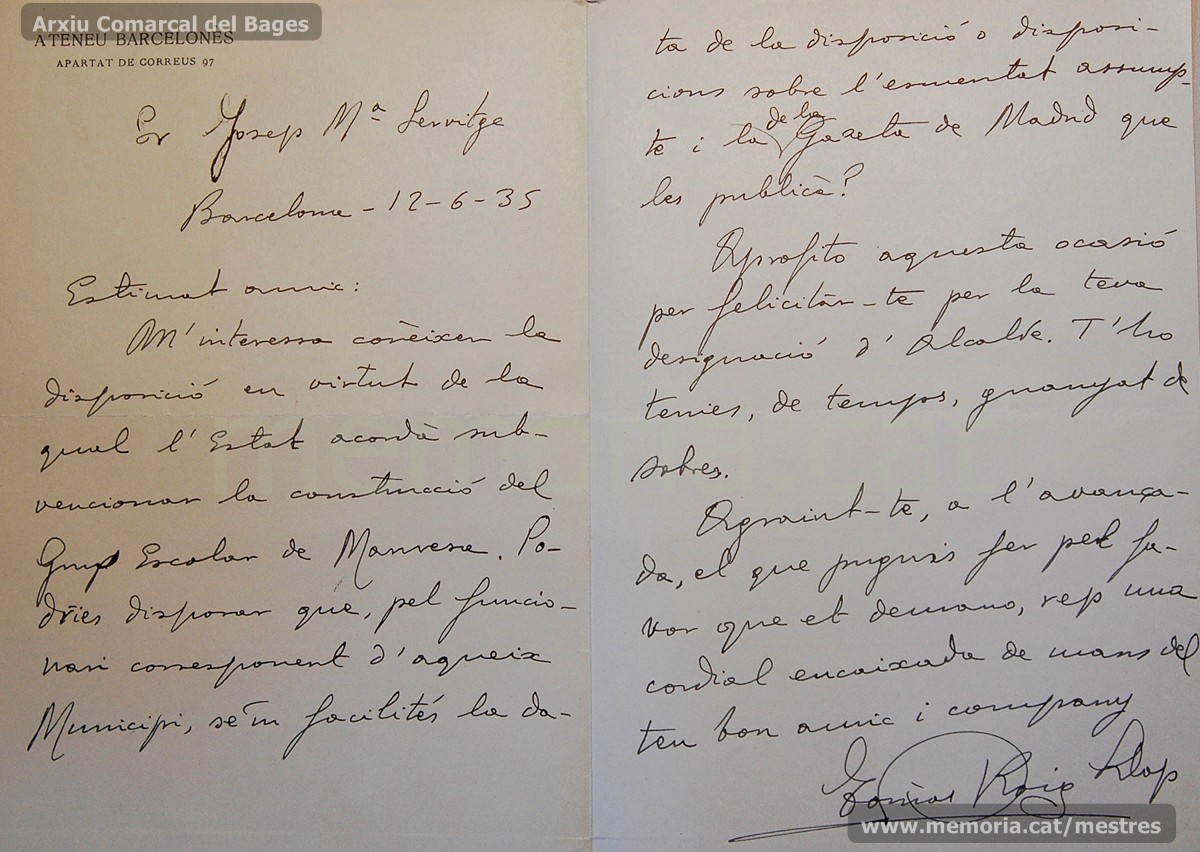 Arxiu Comarcal del Bages
ATENEU BARCELONES
APARTAT DE CORREUS 97
Sr Josep Mª Servitge
Barcelona - 12-6-35
Estimat amic:
M'interessa conèixer la
disposició en virtut de la
qual l'Estat acordà sub-
vencionar la construcció del
Grup Escolar de Manresa. Po-
dries disposar que, pel funcio-
nari corresponent d'aqueix
Municipi, se'm facilités la da-
ta de la disposició o disposi-
cions sobre l'esmentat assump-
te i la de la Gazeta de Madrid que
les publicà?
Aprofito aquesta ocasió
per felicitàr-te per la teva
designació d'Alcalde. T'ho
tenies, de temps, guanyat de
sobres.
Agraint-te, a l'avança-
da, el que puguis fer pel fa-
vor que et demano, rep una
cordial encaixada de mans del
teu bon amic i company
Tomàs Roig Llop
www.memoria.cat/mestres